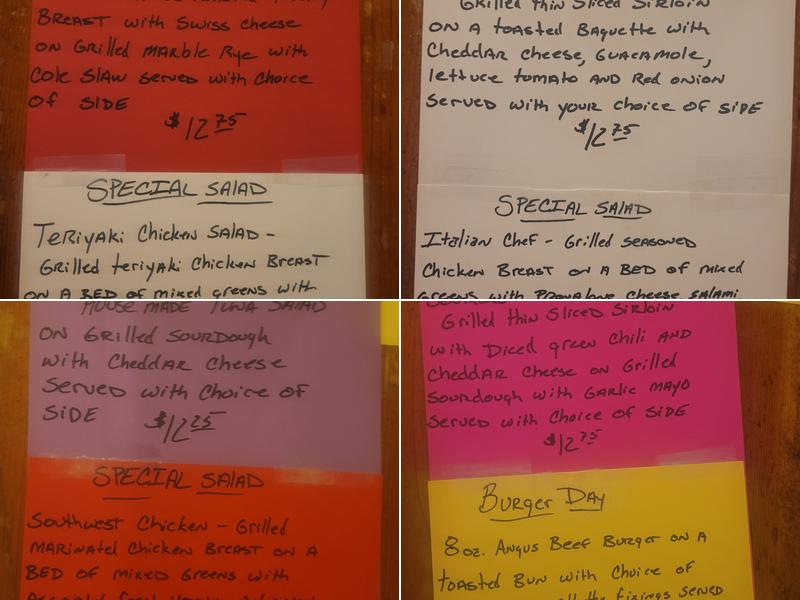 Breast with Swiss cheese
on Grilled marble Rye with
Cole Slaw served with choice
of side
$12.75
Special Salad
Teriyaki Chicken Salad -
Grilled teriyaki Chicken Breast
on a bed of mixed greens with
Grilled thin sliced Sirloin
on a toasted Baguette with
Cheddar cheese, Guacamole,
lettuce tomato and Red onion
Served with your choice of side
$12.75
Special Salad
Italian Chef - Grilled seasoned
Chicken Breast on a bed of mixed
greens with Provalone cheese salami
House made Tuna Salad
on Grilled Sourdough
with Cheddar Cheese
Served with choice of
side
$12.25
Special Salad
Southwest Chicken - Grilled
marinated Chicken Breast on a
Bed of mixed Greens with
Grilled thin Sliced Sirloin
with Diced green Chili and
Cheddar Cheese on Grilled
Sourdough with Garlic mayo
Served with Choice of side
$12.75
Burger Day
8 oz. Angus Beef Burger on a
toasted Bun with Choice of
all the fixings served